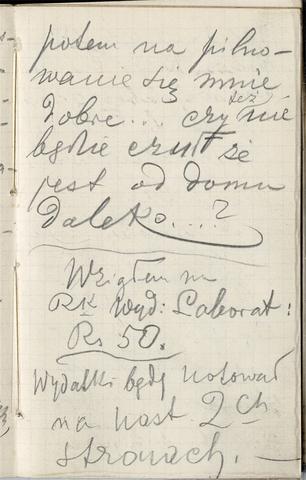 potem na pilno-
wanie się mnie
dobre... czy też nie
będzie czuł że
jest od domu
daleko....?
Wziąłem na
RK wyd: Laborat:
Rs 50.
Wydatki będę notował
na nast. 2ch
stronach. —